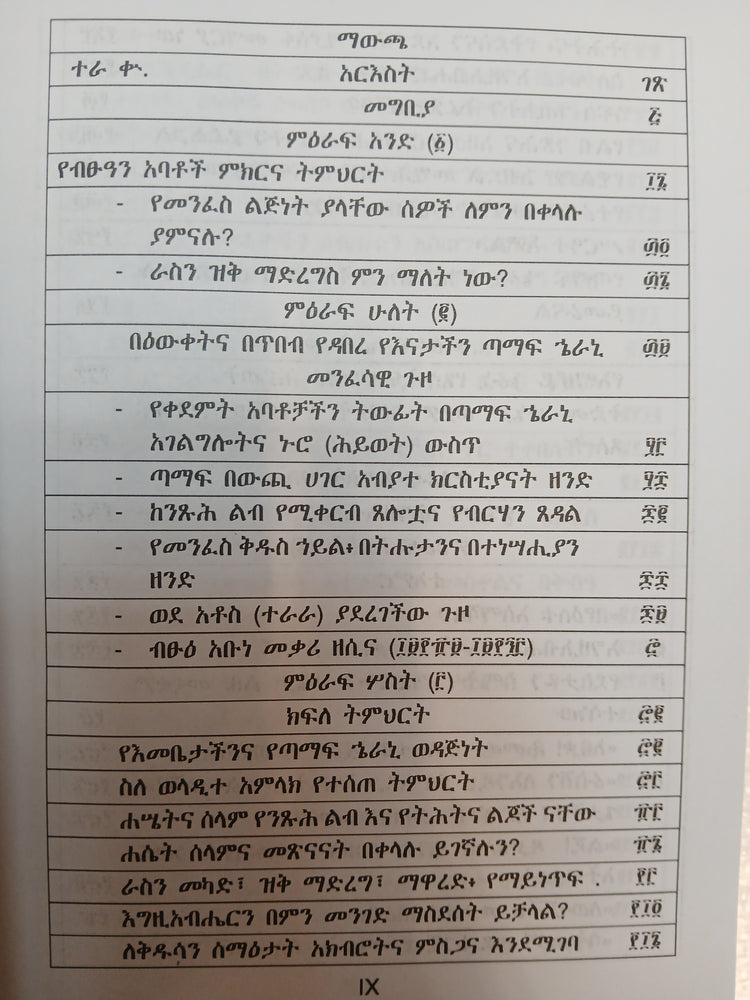 ማውጫ
ተራ ቍ. አርእስት ገጽ
መግቢያ ፩
ምዕራፍ አንድ (፩)
የብፁዓን አባቶች ምክርና ትምህርት ፲፯
- የመንፈስ ልጅነት ያላቸው ሰዎች ለምን በቀላሉ
ያምናሉ? ፴፬
- ራስን ዝቅ ማድረግስ ምን ማለት ነው? ፴፯
ምዕራፍ ሁለት (፪)
በዕውቀትና በጥበብ የዳበረ የእናታችን ጣማፍ ኄራኒ ፴፱
መንፈሳዊ ጉዞ
- የቀደምት አባቶቻችን ትውፊት በጣማፍ ኄራኒ
አገልግሎትና ኑሮ (ሕይወት) ውስጥ ፶፫
- ጣማፍ በውጪ ሀገር አብያተ ክርስቲያናት ዘንድ ፶፰
- ከንጹሕ ልብ የሚቀርብ ጸሎቷና የብርሃን ጸዳል ፷፪
- የመንፈስ ቅዱስ ኀይል፥ በትሑታንና በተነሣሒያን
ዘንድ ፷፰
- ወደ አቶስ (ተራራ) ያደረገችው ጉዞ ፷፱
- ብፁዕ አቡነ መቃሪ ዘሲና (፲፱፻፹፱-፲፱፻፺፫) ፸
ምዕራፍ ሦስት (፫)
ክፍለ ትምህርት ፸፪
የእመቤታችንና የጣማፍ ኄራኒ ወዳጅነት ፸፪
ስለ ወላዲተ አምላክ የተሰጠ ትምህርት ፸፫
ሐሤትና ሰላም የንጹሕ ልብ እና የትሕትና ልጆች ናቸው ፹፫
ሐሴት ሰላምና መጽናናት በቀላሉ ይገኛሉን? ፹፯
ራስን መካድ፣ ዝቅ ማድረግ፣ ማዋረድ፥ የማይነጥፍ . ፻፫
እግዚአብሔርን በምን መንገድ ማስደሰት ይቻላል? ፻፲፬
ለቅዱሳን ሰማዕታት አክብሮትና ምስጋና እንደሚገባ ፻፲፯
IX